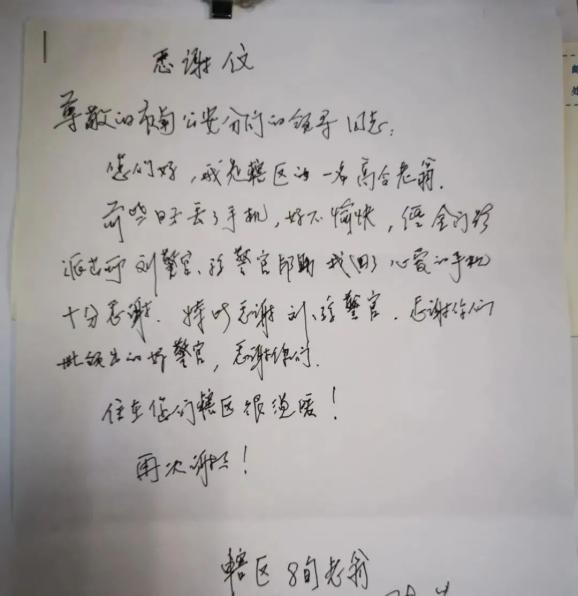 感谢信
尊敬的市南公安分局的领导同志:
您们好,我是辖区的一名高令老翁.
前些日子丢了手机,好不愉快,经金门路
派出所刘警官、徐警官帮助我(找回)了心爱的手机
十分感谢.特此感谢刘、徐警官.感谢你们
批领出的好警官,感谢您们.
住在您们辖区很温暖!
再次谢谢!
辖区8旬老翁